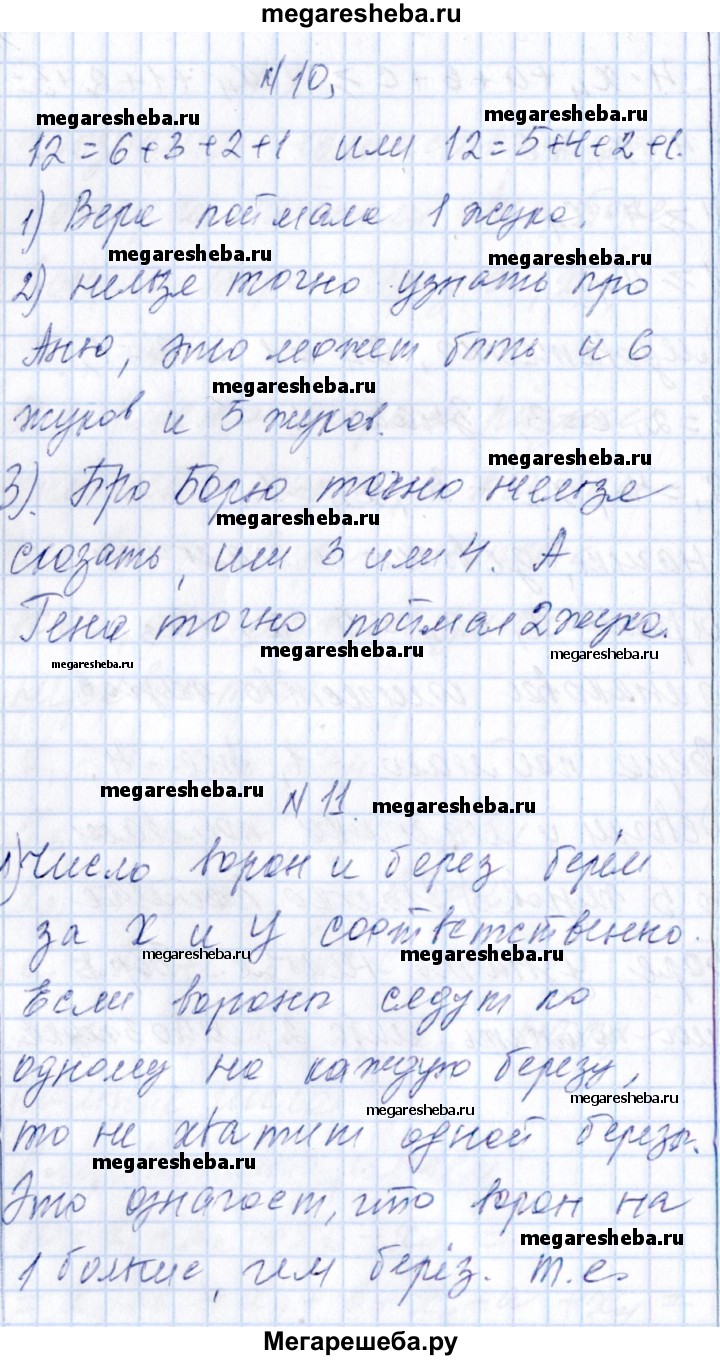 megaresheba.ru
N 10.
megaresheba.ru megaresheba.ru
12 = 6+3+2+1 или 12 = 5+4+2+1.
1) Вера поймала 1 жука.
megaresheba.ru megaresheba.ru
2) нельзя точно узнать про
Аню, это может быть и 6
megaresheba.ru
жуков и 5 жуков.
megaresheba.ru
3). Про Борю точно нельзя
megaresheba.ru
сказать, или 3 или 4. А
Гена точно поймал 2 жука.
megaresheba.ru megaresheba.ru megaresheba.ru
megaresheba.ru N 11. megaresheba.ru
1) Число ворон и берез берём
за x и y соответственно.
megaresheba.ru megaresheba.ru
Если вороны сядут по
одному на каждую березу,
megaresheba.ru megaresheba.ru
то не хватит одной березы.
megaresheba.ru
Это означает, что ворон на
megaresheba.ru
1 больше, чем берёз. т.е.
megaresheba.ru
Мегарешеба.ру